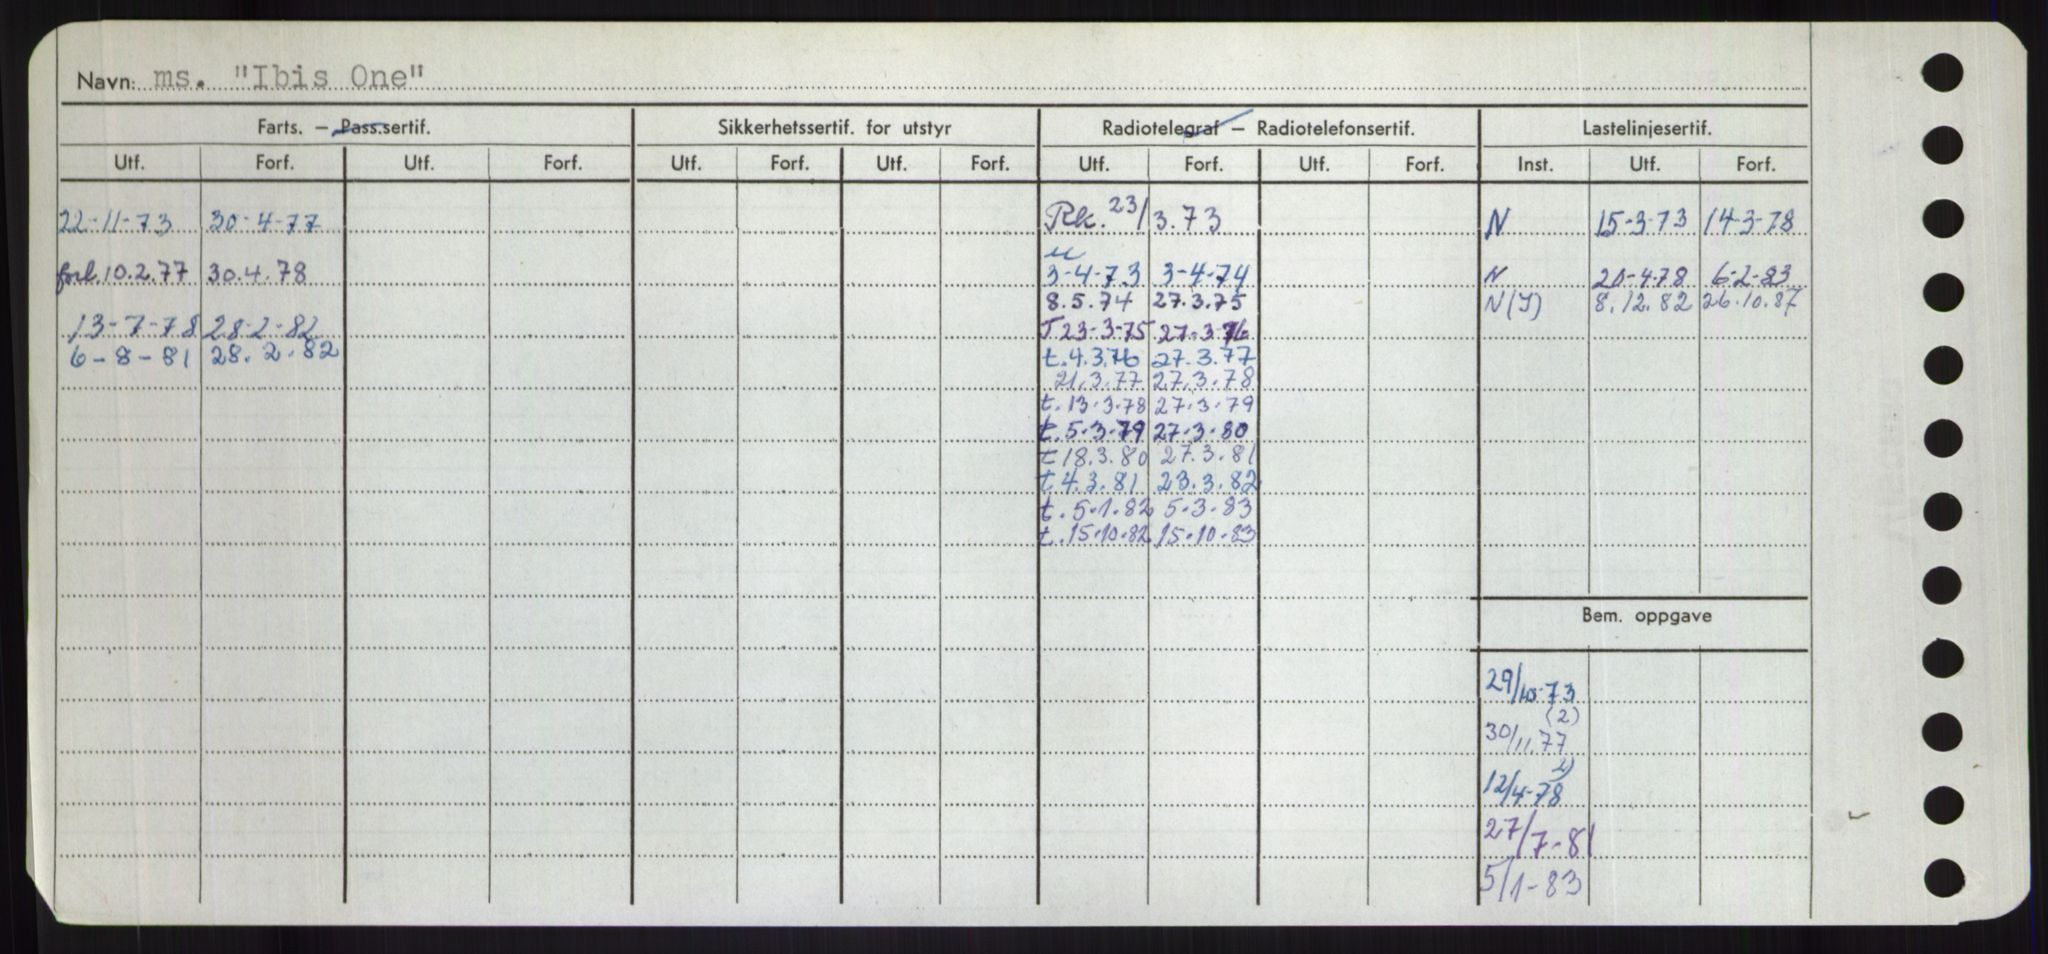 Navn: ms. "Ibis One"
Farts. — Pass.sertif. Sikkerhetssertif. for utstyr Radiotelegraf — Radiotelefonsertif. Lastelinjesertif.
Utf. Forf. Utf. Forf. Utf. Forf. Utf. Forf. Utf. Forf. Utf. Forf. Inst. Utf. Forf.
22-11-73 30-4-77 Rk. 23/3.73 N 15-3-73 14-3-78
forl. 10.2.77 30.4.78 3-4-73 3-4-74 N 20-4-78 6-2-83
8.5.74 27.3.75 N(I) 8.12.82 26.10.87
13-7-78 28-2-82 T 23-3-75 27-3-76
6-8-81 28.2.82 t.4.3.76 27.3.77
21.3.77 27.3.78
t.13.3.78 27.3.79
t.5.3.79 27.3.80
t 18.3.80 27.3.81
t 4.3.81 23.3.82
t.5.1.82 5.3.83
t.15.10.82 15.10.83
Bem. oppgave
29/10-73
(2)
30/11.77
2)
12/4-78
27/7-81
5/1-83